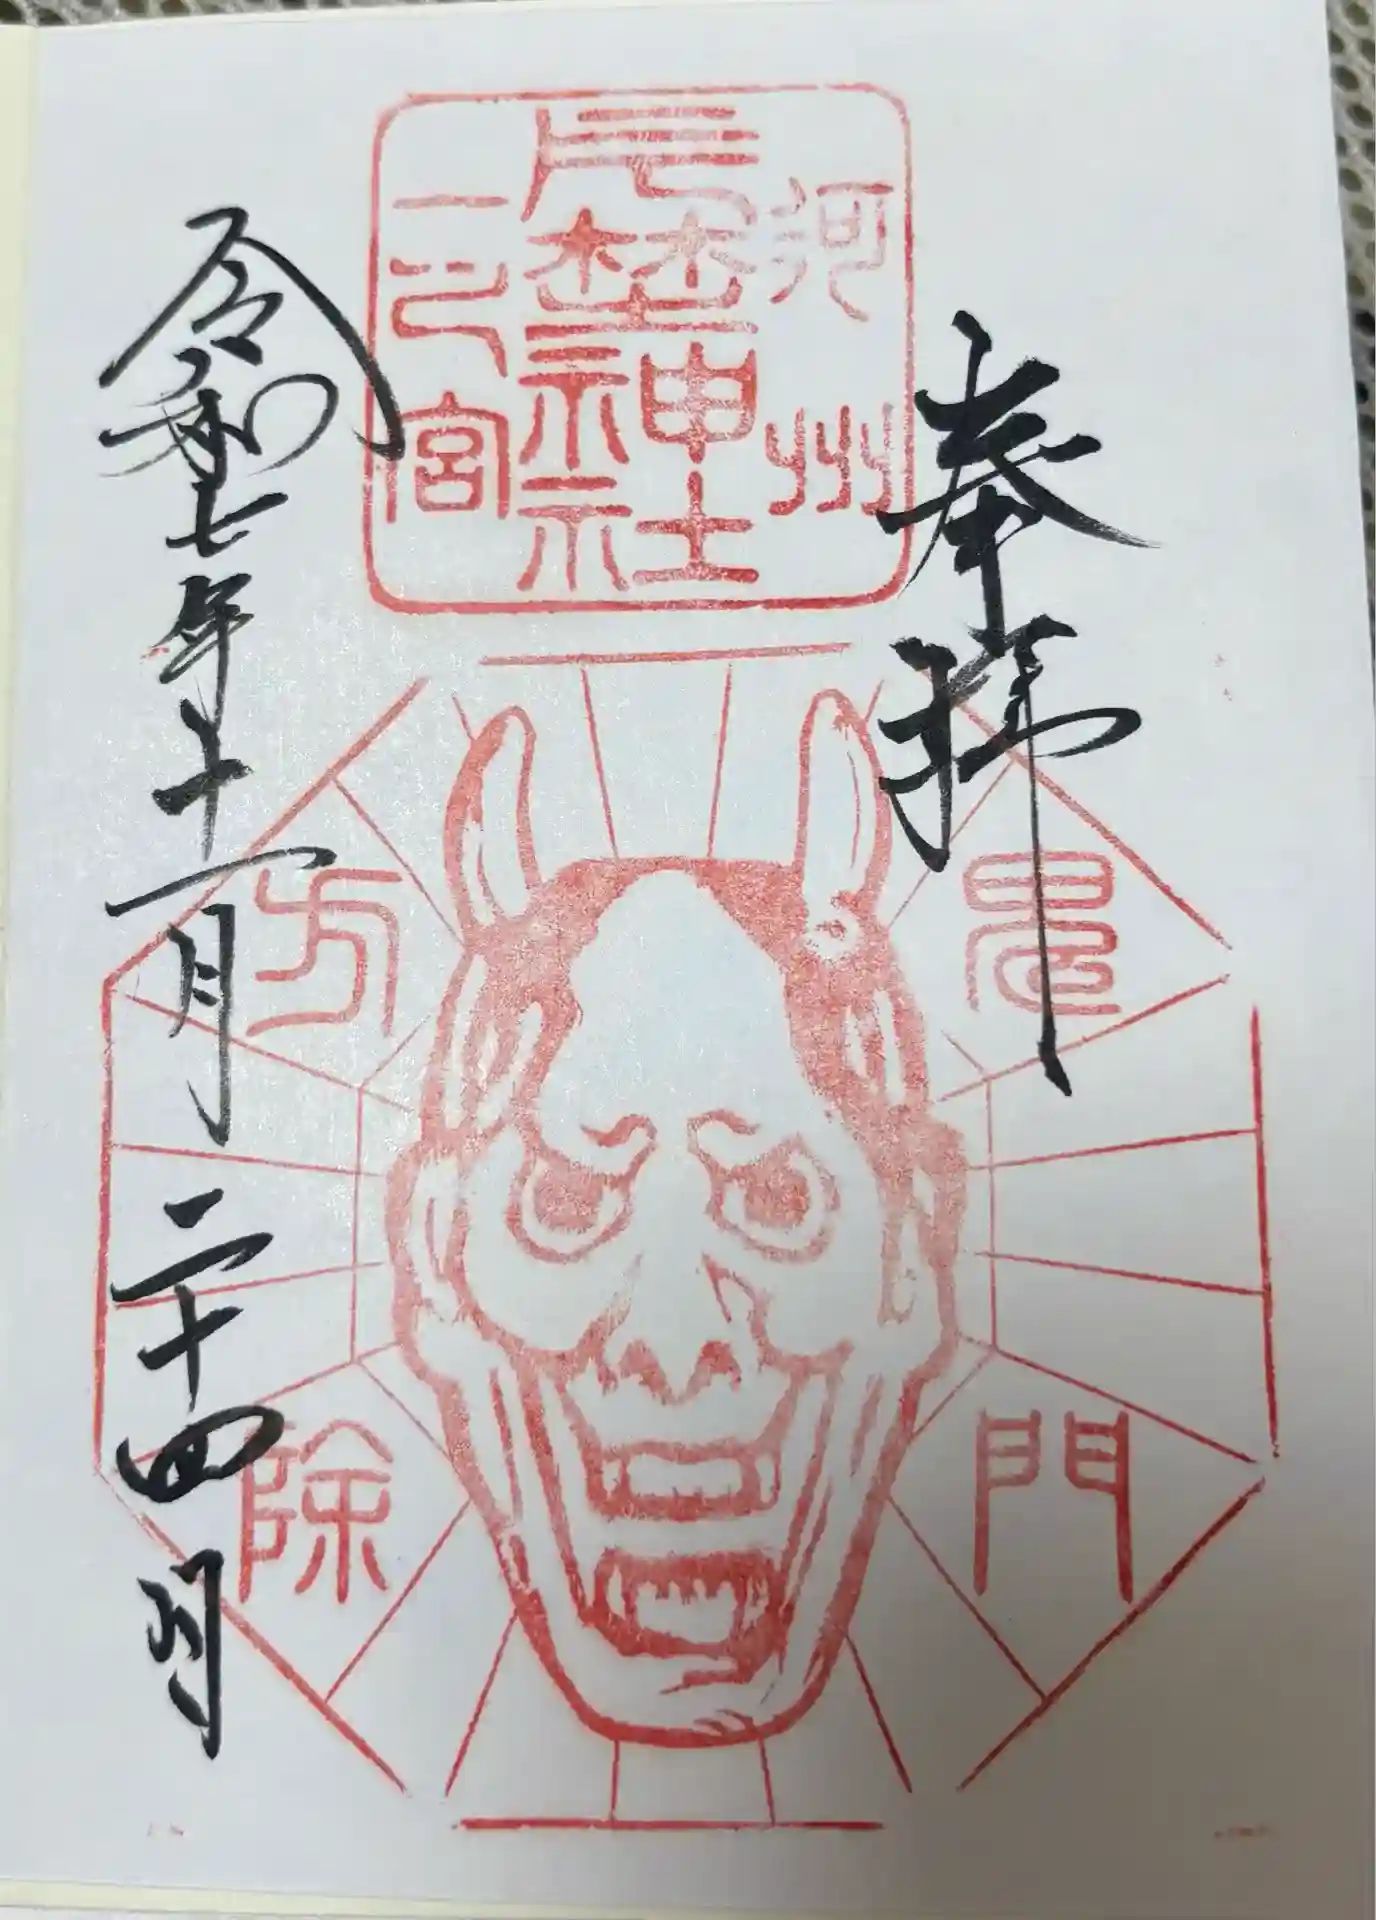 奉拝
河州
片埜神社
一之宮
鬼門
方除
令和七年十一月二十四日